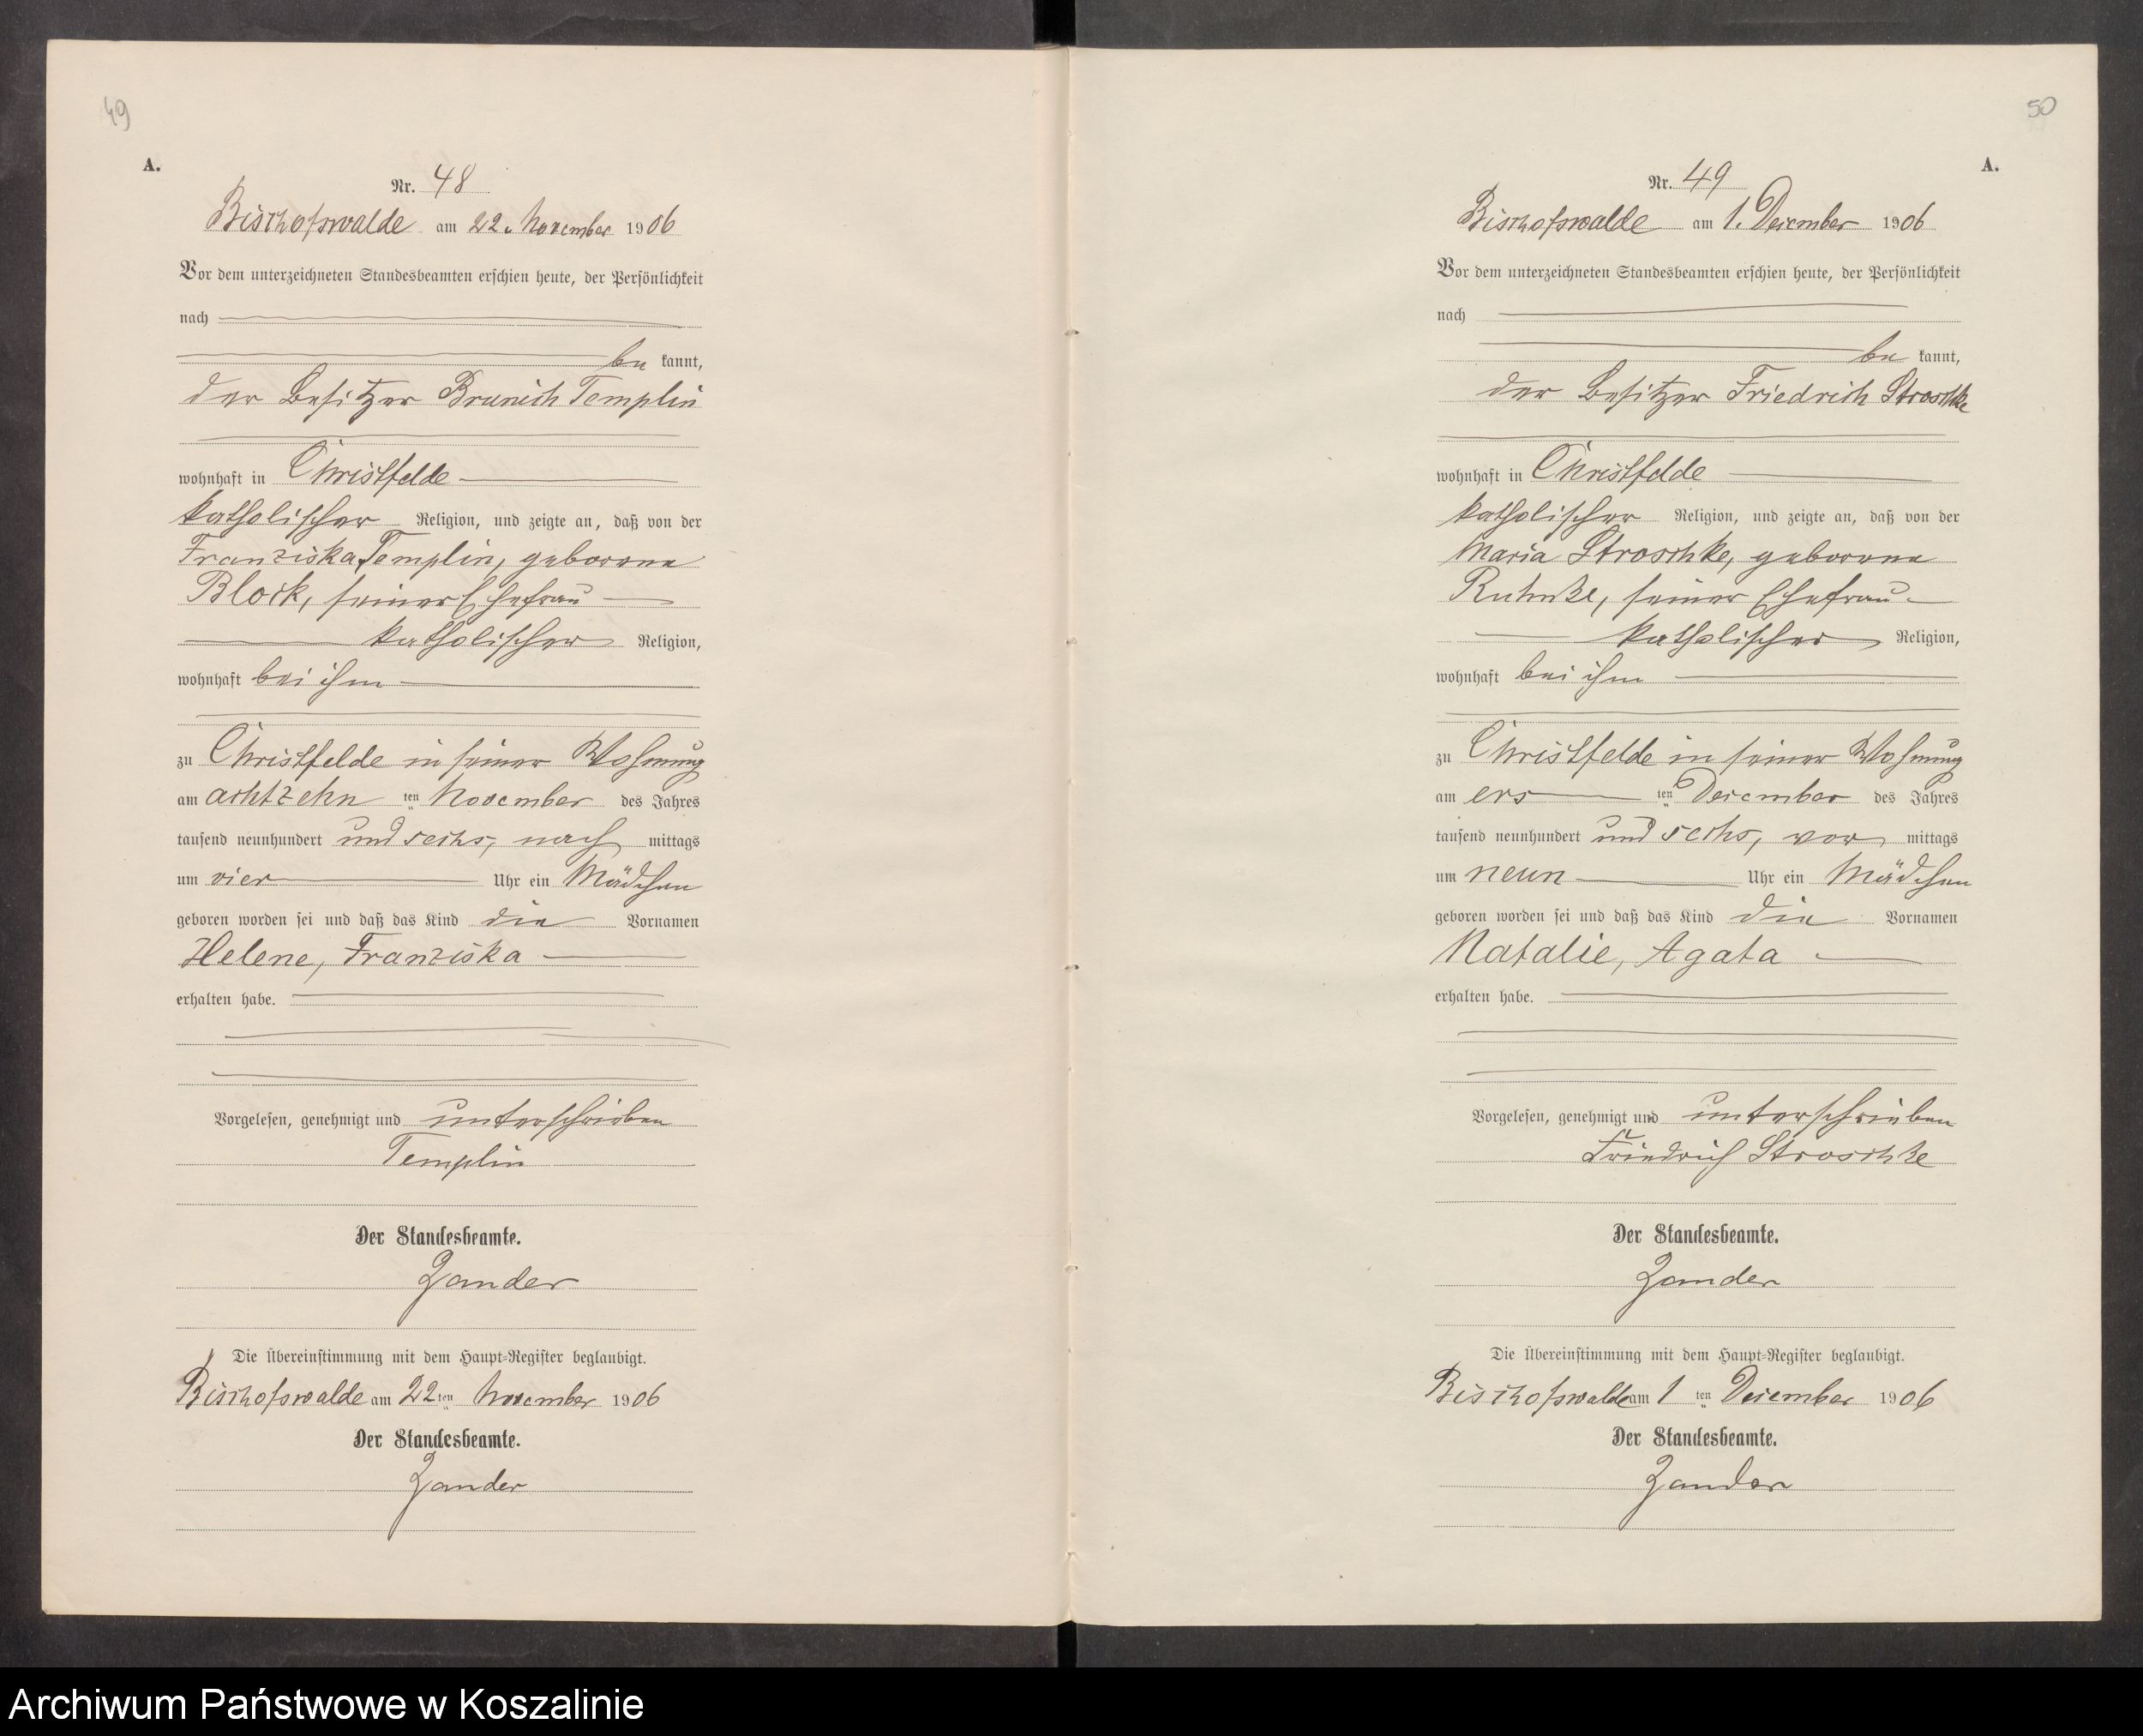 49
A.
Nr. 48
Bischofswalde am 22. November 1906
Vor dem unterzeichneten Standesbeamten erschien heute, der Persönlichkeit
nach
be kannt,
der Besitzer Templin
wohnhaft in Christfelde
katholischer Religion, und zeigte an, daß von der
Franziska Templin, geborene
Block, seiner Ehefrau
katholischer Religion,
wohnhaft bei ihm
zu Christfelde in seiner Wohnung
am achtzehn ten November des Jahres
tausend neunhundert und sechs, nach mittags
um vier Uhr ein Mädchen
geboren worden sei und daß das Kind die Vornamen
Helene, Franziska
erhalten habe.
Vorgelesen, genehmigt und unterschrieben
Templin
Der Standesbeamte.
Zander
Die Übereinstimmung mit dem Haupt-Register beglaubigt.
Bischofswalde am 22ten November 1906
Der Standesbeamte.
Zander
50
A.
Nr. 49
Bischofswalde am 1. Dezember 1906
Vor dem unterzeichneten Standesbeamten erschien heute, der Persönlichkeit
nach
be kannt,
der Besitzer Friedrich Stroschke
wohnhaft in Christfelde
katholischer Religion, und zeigte an, daß von der
Maria Stroschke, geborene
Ruhnke, seiner Ehefrau
katholischer Religion,
wohnhaft bei ihm
zu Christfelde in seiner Wohnung
am ers ten Dezember des Jahres
tausend neunhundert und sechs, vor mittags
um neun Uhr ein Mädchen
geboren worden sei und daß das Kind die Vornamen
Natalie, Agata
erhalten habe.
Vorgelesen, genehmigt und unterschrieben
Friedrich Stroschke
Der Standesbeamte.
Zander
Die Übereinstimmung mit dem Haupt-Register beglaubigt.
Bischofswalde am 1 ten Dezember 1906
Der Standesbeamte.
Zander
Archiwum Państwowe w Koszalinie